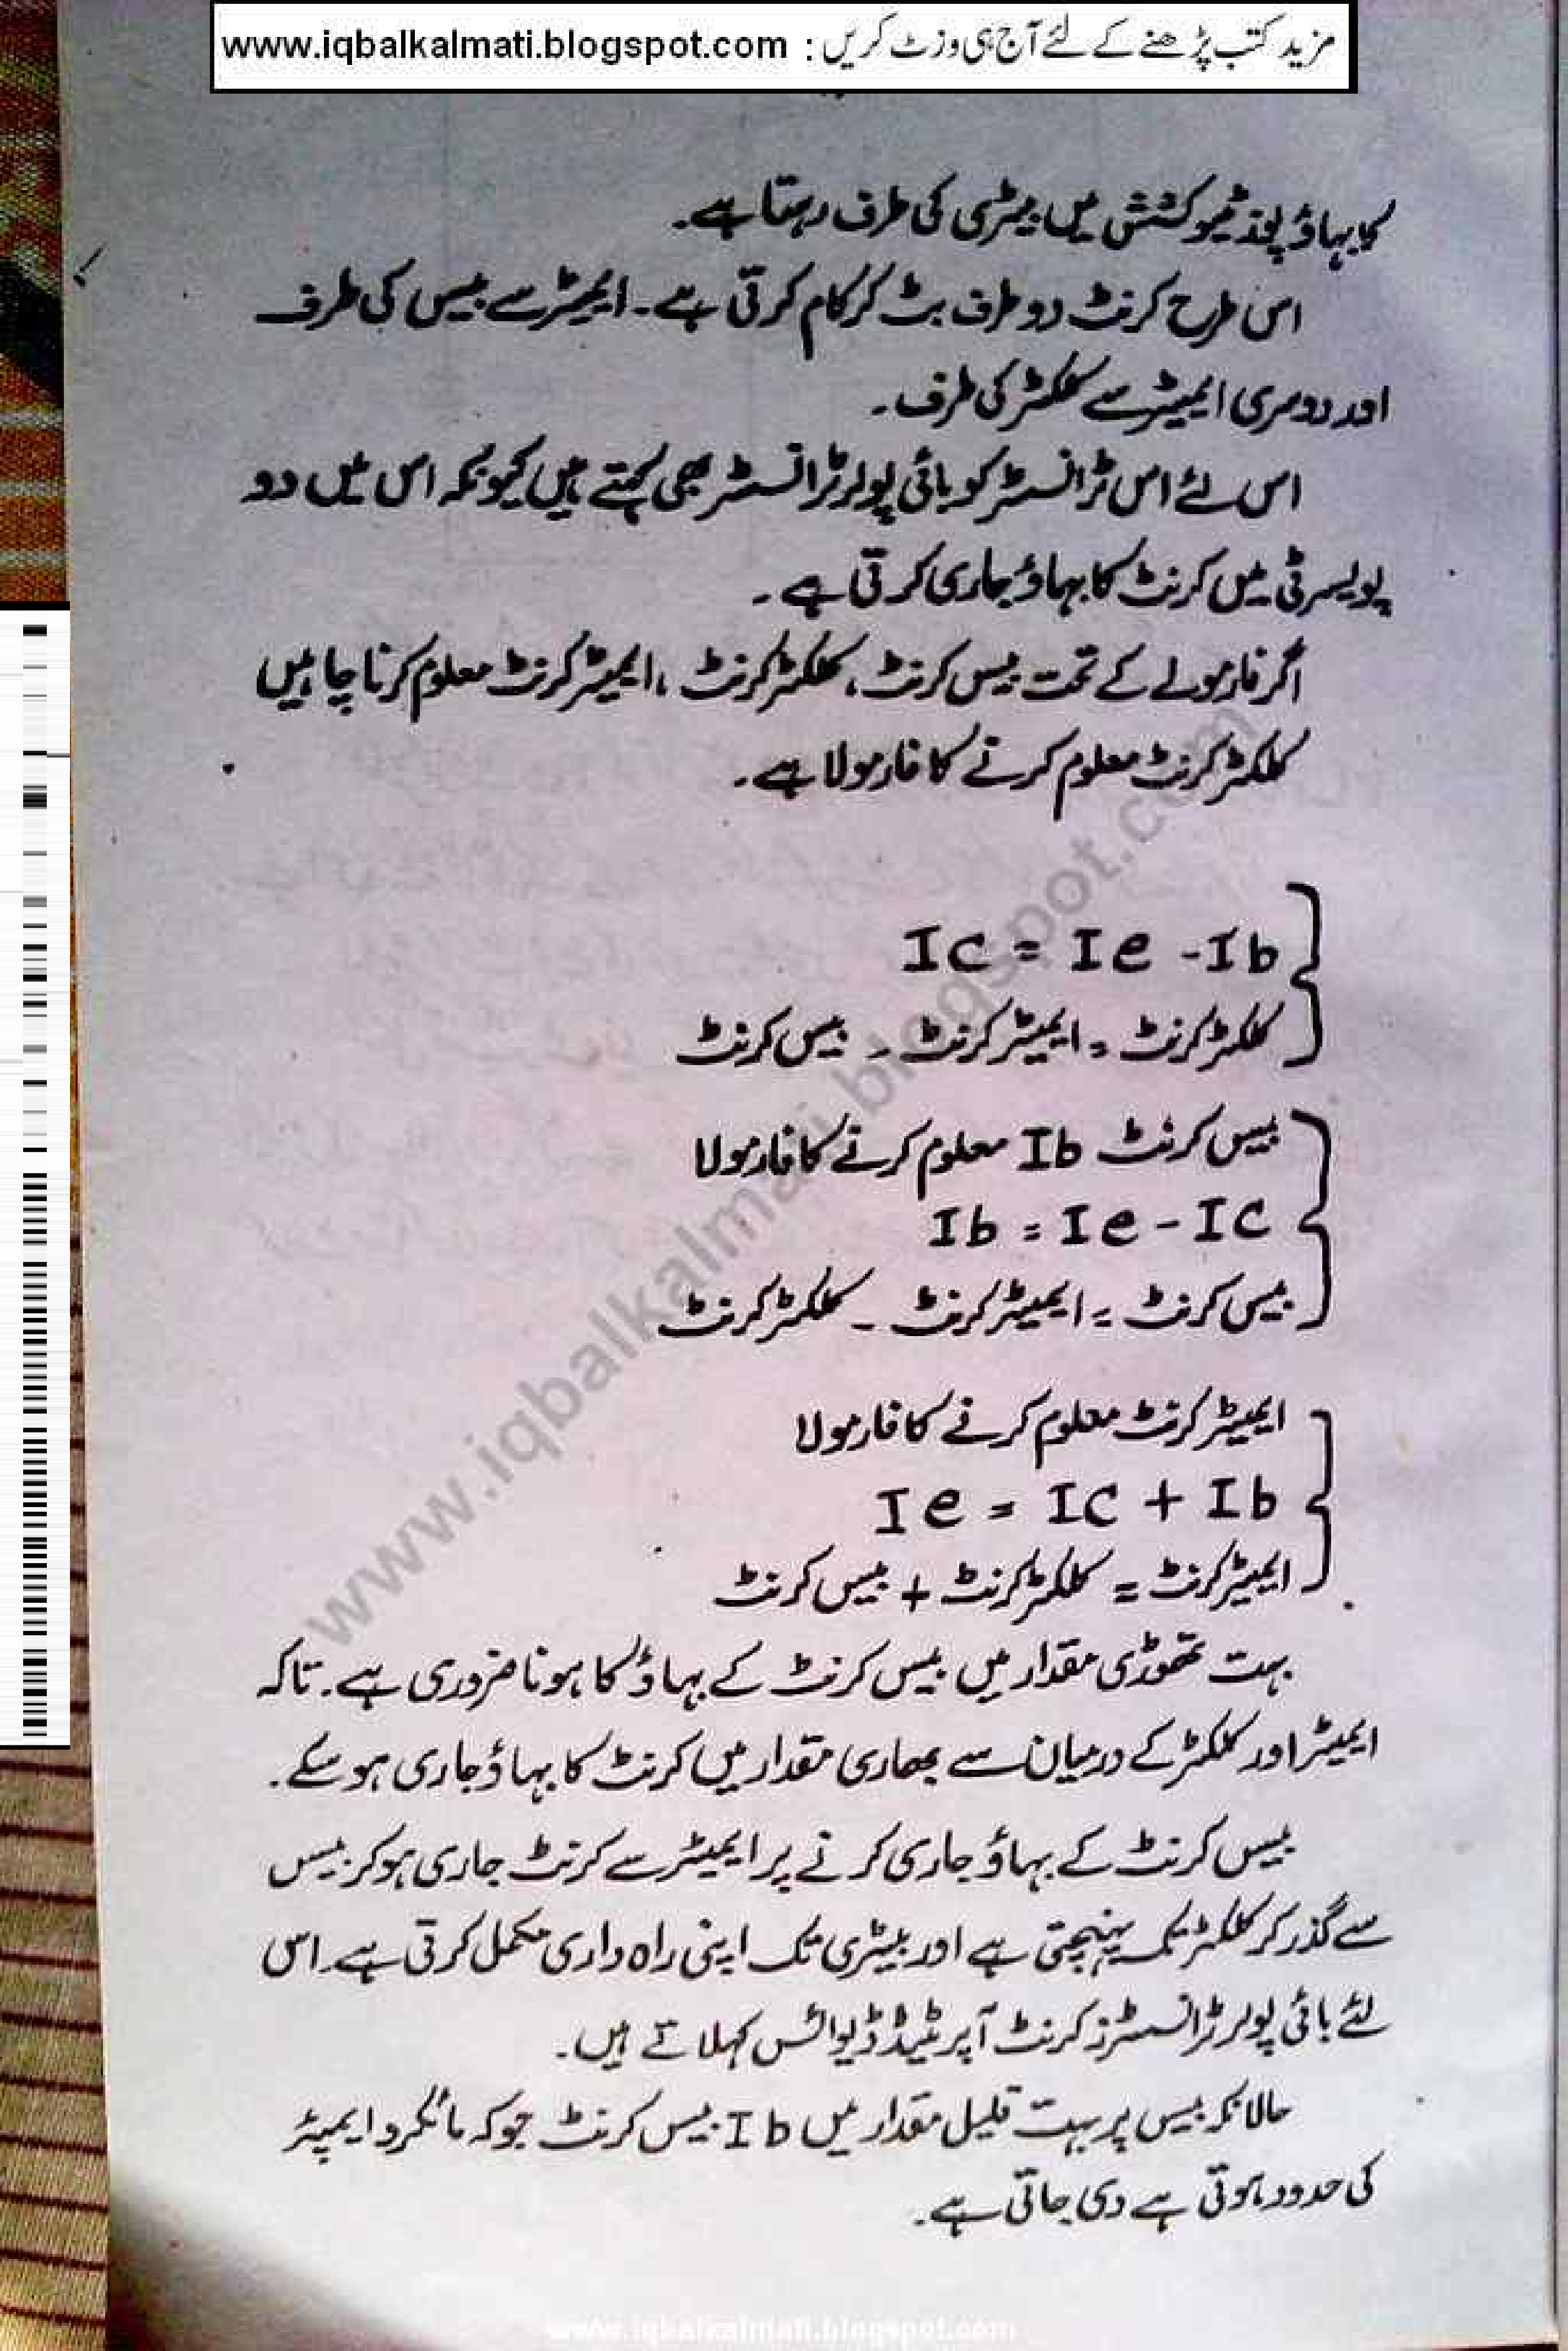 مزید کتب پڑھنے کے لئے آج ہی وزٹ کریں : www.iqbalkalmati.blogspot.com
کا بہاؤ پوزیٹیو کشش میں بیٹری کی طرف رہتا ہے۔
اس طرح کرنٹ دو طرف بٹ کر کام کرتی ہے۔ ایمیٹر سے بیس کی طرف
اور دوسری ایمیٹر سے کلکٹر کی طرف۔
اس لئے اس ٹرانسسٹر کو بائی پولر ٹرانسسٹر بھی کہتے ہیں کیونکہ اس میں دو
پولیرٹی میں کرنٹ کا بہاؤ جاری کرتی ہے۔
اگر فارمولے کے تحت بیس کرنٹ، کلکٹر کرنٹ، ایمیٹر کرنٹ معلوم کرنا چاہیں
کلکٹر کرنٹ معلوم کرنے کا فارمولا ہے۔
Ic = Ie - Ib
کلکٹر کرنٹ = ایمیٹر کرنٹ - بیس کرنٹ
بیس کرنٹ Ib معلوم کرنے کا فارمولا
Ib = Ie - Ic
بیس کرنٹ = ایمیٹر کرنٹ - کلکٹر کرنٹ
ایمیٹر کرنٹ معلوم کرنے کا فارمولا
Ie = Ic + Ib
ایمیٹر کرنٹ = کلکٹر کرنٹ + بیس کرنٹ
بہت تھوڑی مقدار میں بیس کرنٹ کے بہاؤ کا ہونا ضروری ہے۔ تاکہ
ایمیٹر اور کلکٹر کے درمیان سے بھاری مقدار میں کرنٹ کا بہاؤ جاری ہو سکے۔
بیس کرنٹ کے بہاؤ جاری کرنے پر ایمیٹر سے کرنٹ جاری ہو کر بیس
سے گذر کر کلکٹر تک پہنچتی ہے اور بیٹری تک اپنی راہ داری مکمل کرتی ہے۔ اس
لئے بائی پولر ٹرانسسٹرز کرنٹ آپریٹیڈ ڈیوائس کہلاتے ہیں۔
حالانکہ بیس پر بہت قلیل مقدار میں Ib بیس کرنٹ جو کہ مائکرو ایمپئر
کی حدود ہوتی ہے دی جاتی ہے۔
www.iqbalkalmati.blogspot.com
www.iqbalkalmati.blogspot.com